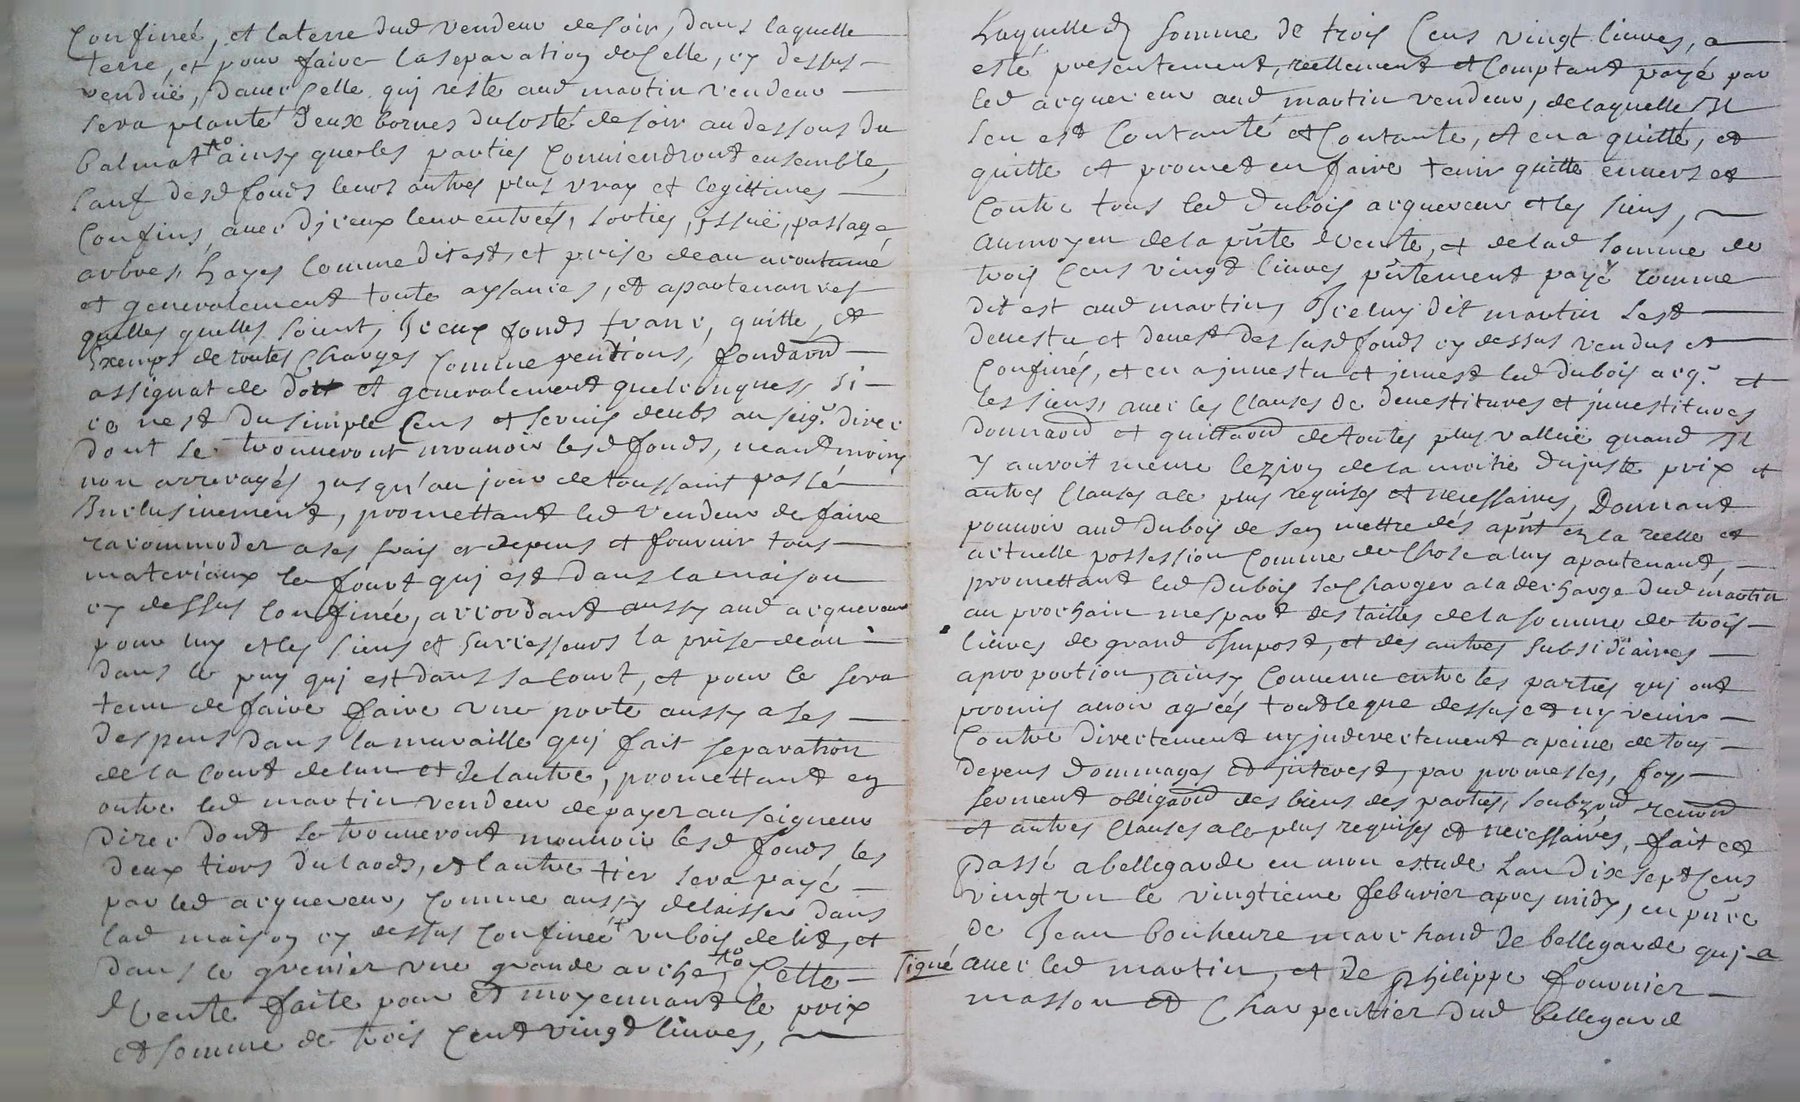 Confineé, et laterre dud vendeur desoir, dans laquelle
terre, et pour faire laseparation de Celle, cy dessus
venduë, davec Celle qui reste aud martin vendeur
sera planté deux bornes ducosté desoir audessous du
balmat ainsy queles parties Conviendront ensemble,
sauf desd fonds leurs autres plus vray et legittimes
Confins, avec d'iceux leur entreés, sorties, issuë, passage
arbres, hayes Comme dit est, et prise deau acoutumé
et generalement toute aysances, et apartenances
quelles quelles soient, Iceux fonds franc, quitte, et
Exempt detoutes Charges Comme pentions, fondaon
assignat de dott et generalement quelconques, si
ce nest dusimple Cens et servis deubs au seigr direc
dont se trouveront mouvoir lesd fonds, neantmoins
non arreragés jusqu'au jour detoussaint passé
Inclusivement, promettant led vendeur defaire
racommoder ases frais et depens et fournir tous
materiaux le fourt qui est dans lamaison
cy dessus Confineé, accordant aussy aud acquereur
pour luy et les siens et successeurs la prise deau
dans le puy qui est dans sa Court, et pour ce sera
tenu defaire faire une porte aussy a ses
despens dans la muraille qui fait separation
de la Court delun et delautre, promettant en
outre led martin vendeur de payer auseigneur
direc dont se trouveront mouvoir lesd fonds les
deux tiers du laods, et lautre tier sera payé
par led acquereur, Comme aussy delaisser dans
lad maison cy dessus Confineé un bois de lict, et
dans le grenier une grande arche, Cette
Vente faite pour et moyennant le prix
et somme de trois Cent vingt livres,
Laquelle d somme de trois Cens vingt livres, a
esté presentement, réellement et Comptant payé par
led acquereur aud martin vendeur, delaquelle Il
sen est Contanté et Contante, et en a quitté, et
quitte et promet en faire tenir quitte envers et
Contre tous led dubois acquereur et les siens,
aumoyen dela pñte Vente, et delad somme de
trois Cens vingt livres pñtement payé comme
dit est aud martin, Iceluy dit martin sest
devestu et devest des susd fonds cy dessus vendus et
Confinés, et en a investu et invest led dubois acqr et
les siens, avec les Clauses de devestitures et investitures
donnaon et quittaon detoutes plus valluë quand Il
y auroit meme lezion dela moitié dujuste prix et
autres Clauses ace plus requises et necessaires, Donnant
pouvoir aud dubois de sen mettre dés apñt en la reelle et
actuelle possession Comme de Chose a luy apartenant,
promettant led dubois se Charger ala decharge dud martin
au prochain mespart des tailles delasomme de trois
livres de grand Impost, et des autres subsidiaires
aproportion, ainsy Convenu entre les parties qui ont
promis avoir agreés tout leque dessus et ny venir
Contre directement ny indirectement apeine de tous
depens dommages et interest, par promesses, foy,
serment obligaon des biens des parties, soubzmis renon
et autres Clauses ace plus requises et necessaires, fait et
passé abellegarde en mon estude Lan dix sept Cens
vingt un le vingtieme febuvrier apres midy, en pñce
de Jean bonheure marchand de bellegarde qui a
signé avec led martin, et de philippe fournier
masson et Charpentier dud bellegard